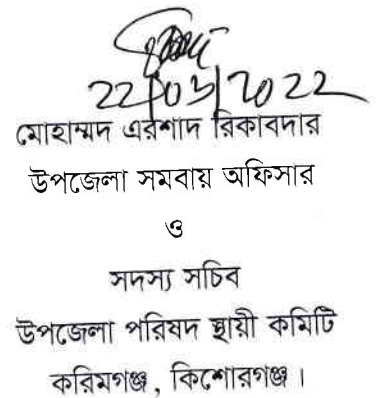 22/03/2022
মোহাম্মদ এরশাদ রিকাবদার
উপজেলা সমবায় অফিসার
ও
সদস্য সচিব
উপজেলা পরিষদ স্থায়ী কমিটি
করিমগঞ্জ, কিশোরগঞ্জ।